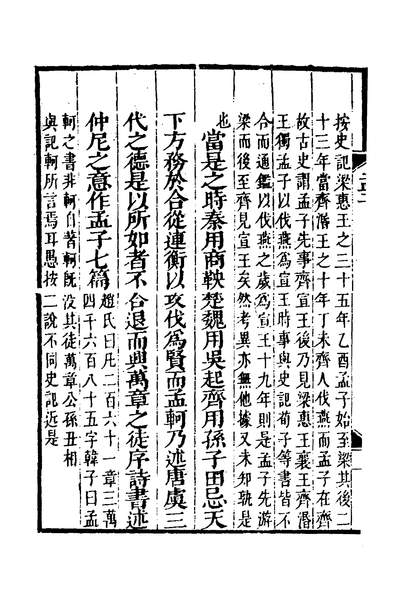 按史記梁惠王之三十五年乙酉孟子始至梁其後二
十三年當齊湣王之十年丁未齊人伐燕而孟子在齊
故古史謂孟子先事齊宣王後乃見梁惠王襄王齊湣
王獨孟子以伐燕爲宣王時事與史記荀子等書皆不
合而通鑑以伐燕之歲爲宣王十九年則是孟子先游
梁而後至齊見宣王矣然考異亦無他據又未知孰是
也當是之時秦用商鞅楚魏用吳起齊用孫子田忌天
下方務於合從連衡以攻伐爲賢而孟軻乃述唐虞三
代之德是以所如者不合退而與萬章之徒序詩書述
仲尼之意作孟子七篇
趙氏曰凡二百六十一章三萬
四千六百八十五字韓子曰孟
軻之書非軻自著軻旣沒其徒萬章公孫丑相
與記軻所言焉耳愚按二說不同史記近是